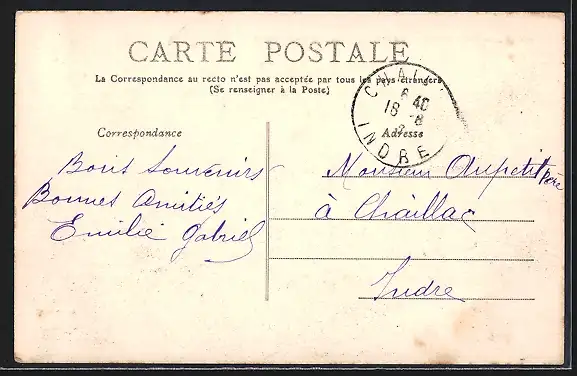 CARTE POSTALE
La Correspondance au recto n'est pas acceptée par tous les pays étrangers
(Se renseigner à la Poste)
CHAIL
6 40
18 -8
INDRE
Correspondance
Adresse
Bons Souvenirs
Bonnes Amitiés
Emilie Gabriel
Monsieur Aupetit père
à Chaillac
Indre